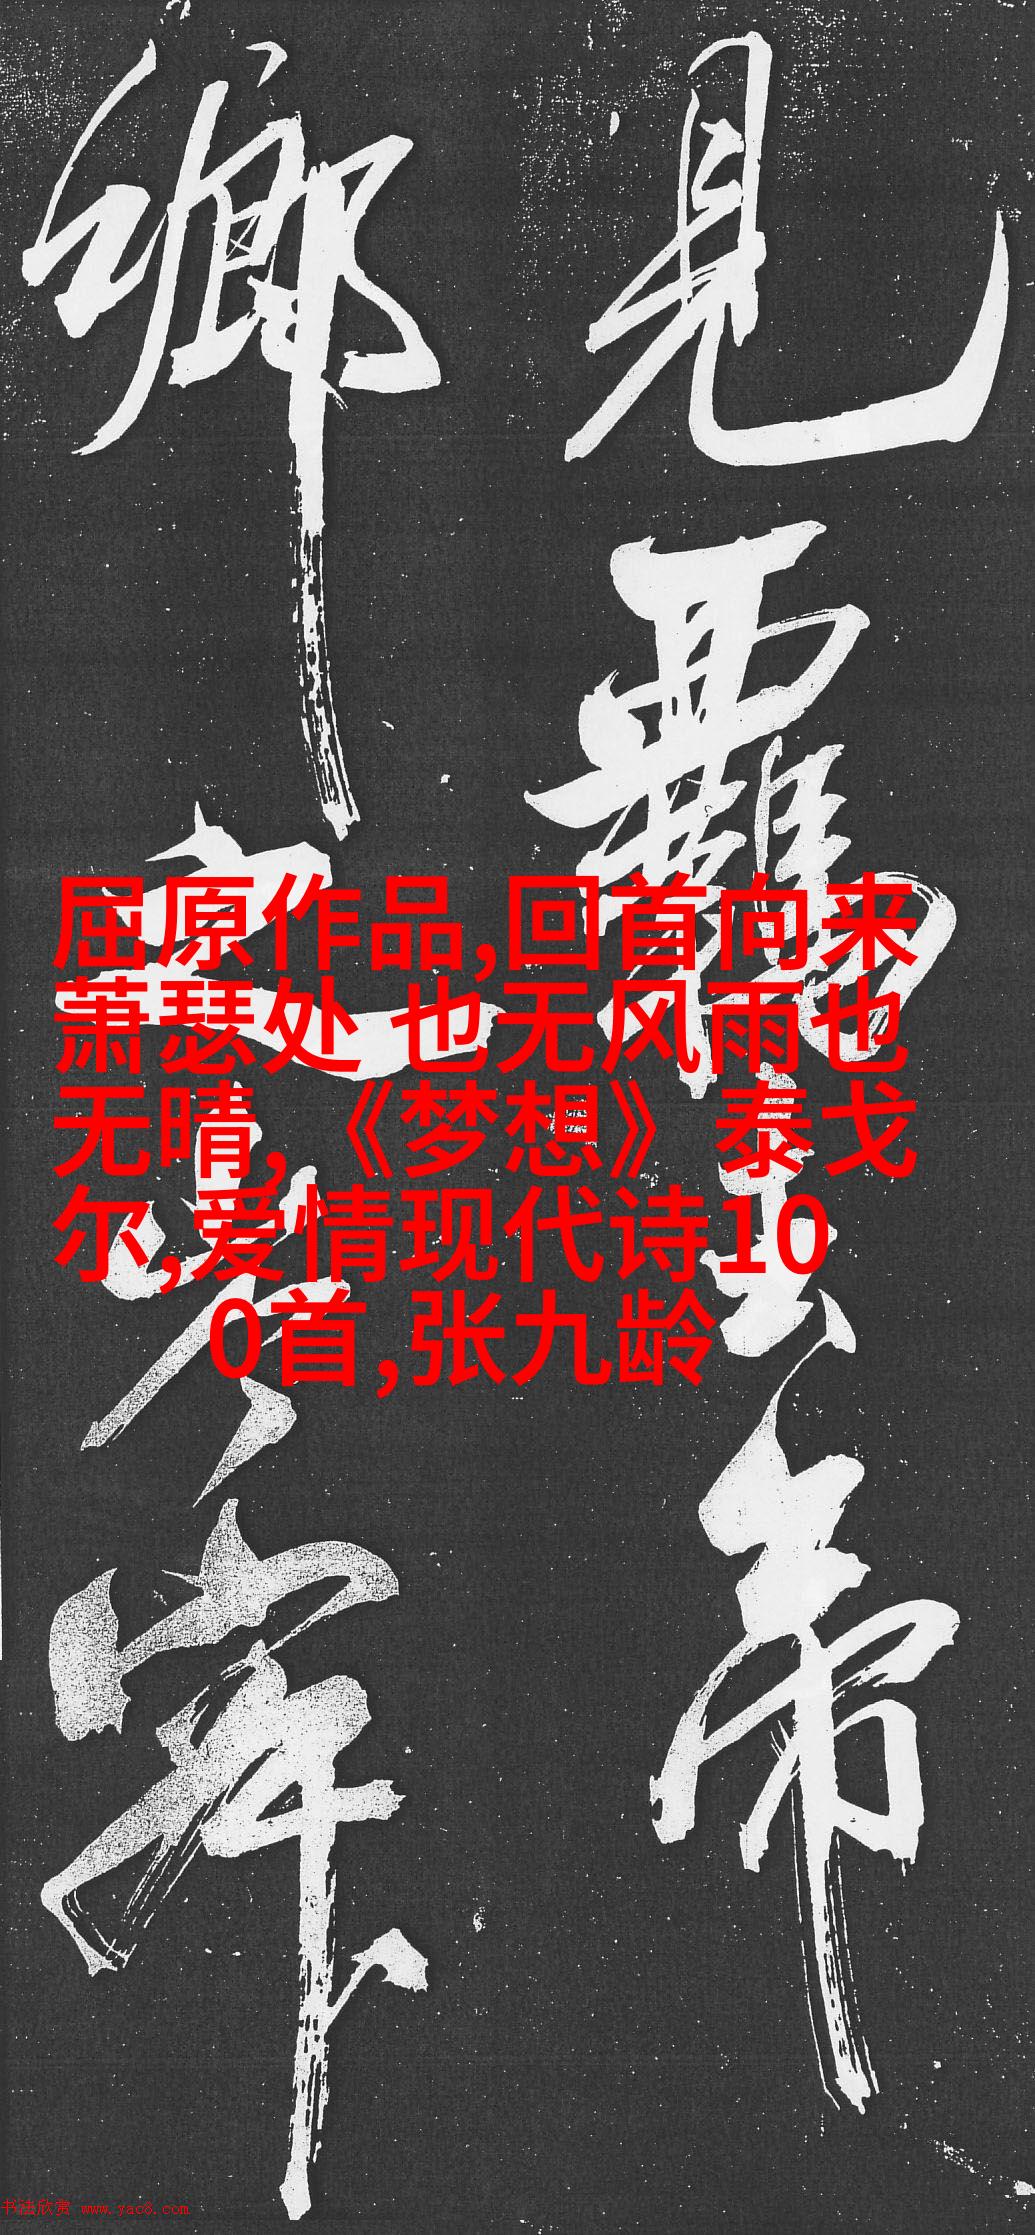 見羈去帝
鄉之岑寂
屈原作品,回首向来
萧瑟处 也无风雨也
无晴,《梦想》 泰戈
尔,爱情现代诗10
0首,张九龄
书法欣赏 www.yac8.com